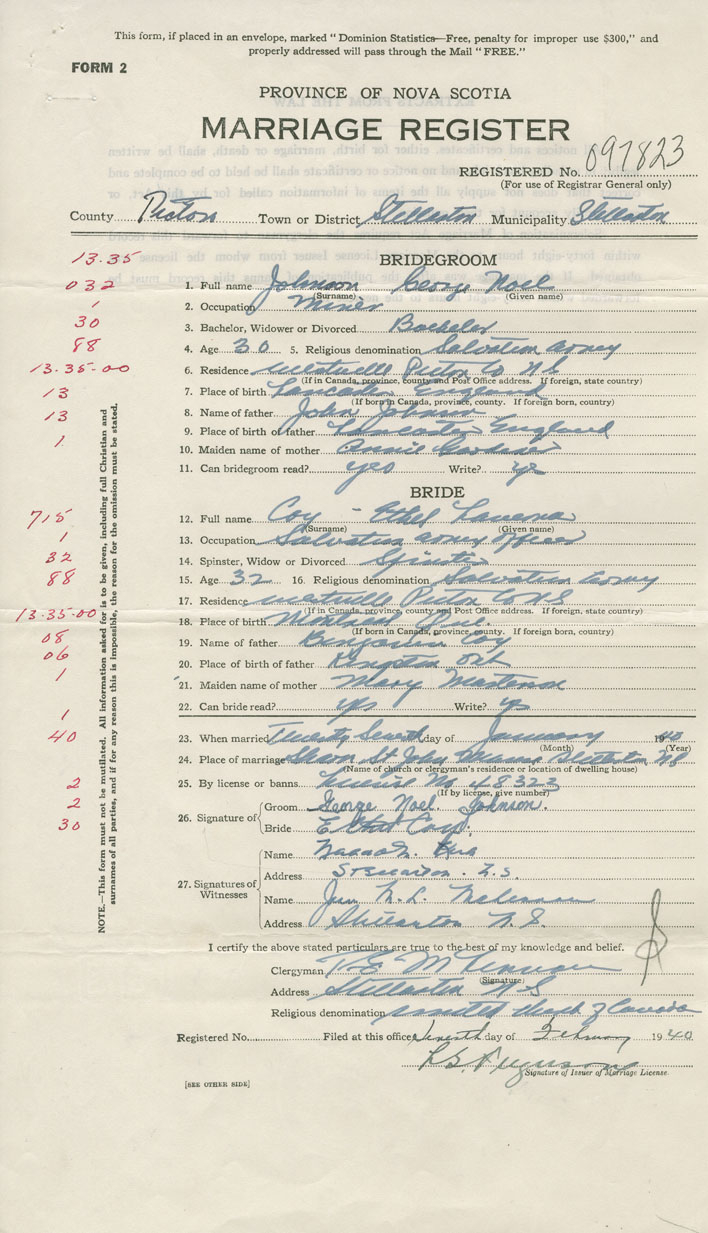 This form, if placed in an envelope, marked "Dominion Statistics—Free, penalty for improper use $300," and
properly addressed will pass through the Mail "FREE."
FORM 2
PROVINCE OF NOVA SCOTIA
MARRIAGE REGISTER
REGISTERED No. 097823
(For use of Registrar General only)
County Pictou Town or District Stellarton Municipality Stellarton
13.35
BRIDEGROOM
032 1. Full name Johnson George Noel
(Surname) (Given name)
1 2. Occupation Miner
30 3. Bachelor, Widower or Divorced Bachelor
88 4. Age 30 5. Religious denomination Salvation Army
13.35-00 6. Residence Westville Pictou Co N.S.
(If in Canada, province, county and Post Office address. If foreign, state country)
13 7. Place of birth Lancaster England
(If born in Canada, province, county. If foreign born, country)
13 8. Name of father John Johnson
9. Place of father Lancaster England
1 10. Maiden name of mother
11. Can bridegroom read? yes Write? yes
BRIDE
715 12. Full name Coy - Ethel
(Surname) (Given name)
1 13. Occupation Salvation Army Officer
32 14. Spinster, Widow or Divorced Spinster
88 15. Age 32 16. Religious denomination Salvation Army
13-35-00 17. Residence Westville Pictou Co N S
(If in Canada, province, county and Post Office address. If foreign, state country)
18. Place of birth Montreal Que.
(If born in Canada, province, county. If foreign born, country)
08 19. Name of father Benjamin Coy
06 20. Place of birth of father Kingston Ont
1 21. Maiden name of mother Mary
22. Can bride read? yes Write? yes
1
40 23. When married Twenty Seventh day of January 1940
(Month) (Year)
24. Place of marriage Sharon St John Manse Stellarton N S
(Name of church or clergyman's residence or location of dwelling house)
2 25. By license or banns. License No 48322
(If by license, give number)
2 26. Signature of Groom George Noel Johnson.
30 Bride E Ethel Coy.
27. Signatures of Witnesses
Name
Address Stellarton. N.S.
Name
Address Stellarton N.S.
I certify the above stated particulars are true to the best of my knowledge and belief.
Clergyman
(Signature)
Address Stellarton N S
Religious denomination United Church of Canada
Registered No. Filed at this office Seventh day of February 1940
Ferguson
Signature of Issuer of Marriage License.
[SEE OTHER SIDE]
NOTE.—This form must not be mutilated. All information asked for is to be given, including full Christian and
surnames of all parties, and if for any reason this is impossible, the reason for the omission must be stated.